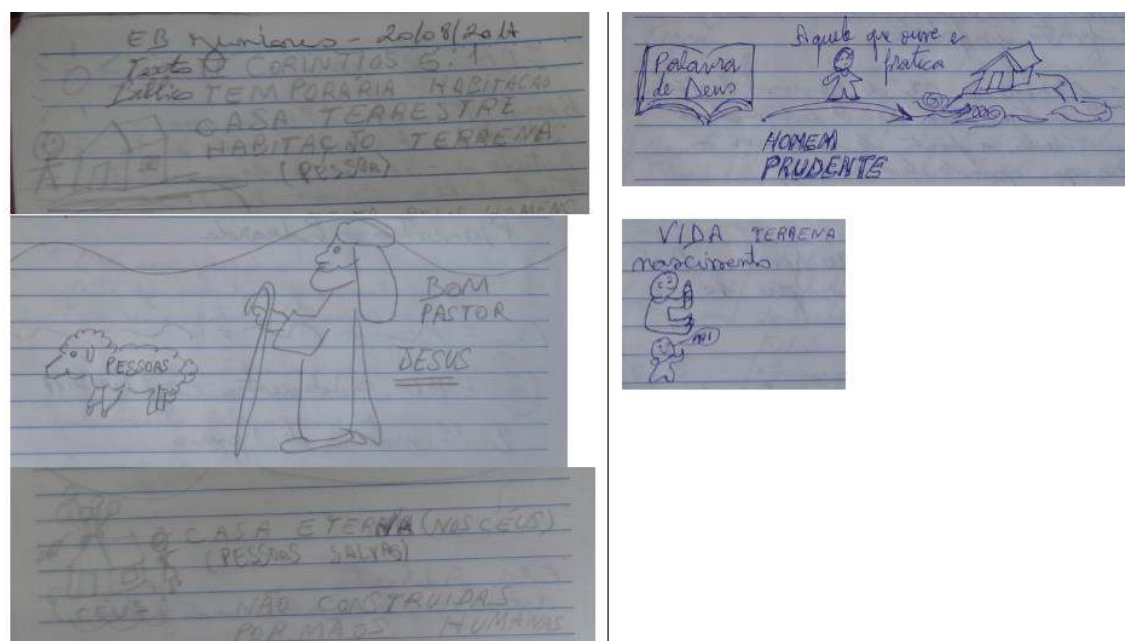 EB Juniores - 20/08/2017
Texto CORINTIOS 5:1
Bíblico TEMPORÁRIA HABITAÇÃO
CASA TERRESTRE
HABITAÇÃO TERRENA
(PESSOA)
BOM
PASTOR
JESUS
PESSOAS
CASA ETERNA (NOS CÉUS)
(PESSOAS SALVAS)
CÉUS
NÃO CONSTRUIDAS
POR MÃOS HUMANAS
Aquele que ouve e
pratica
Palavra
de Deus
HOMEM
PRUDENTE
VIDA TERRENA
nascimento